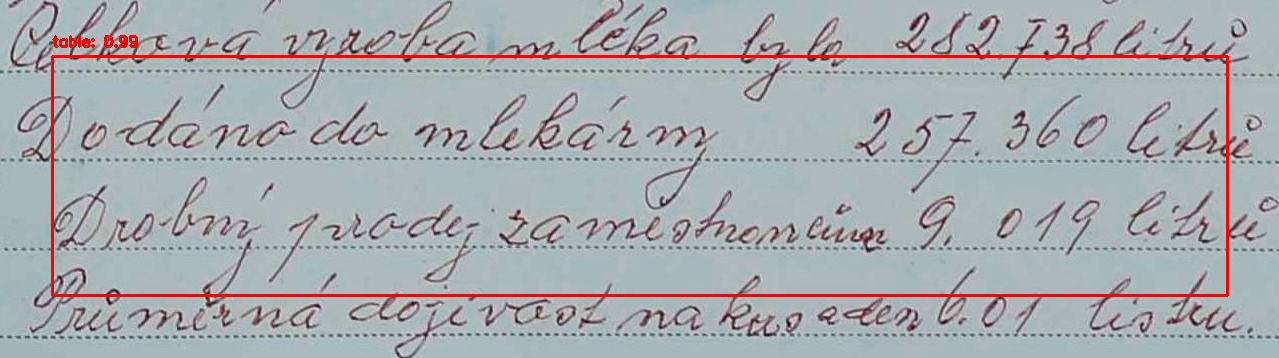 table: 0.99
Celková výroba mléka byla 282.738 litrů
Dodáno do mlekárny 257.360 litrů
Drobný prodej zaměstnancům 9.019 litrů
Průměrná dojivost na kus a den 6.01 litru.